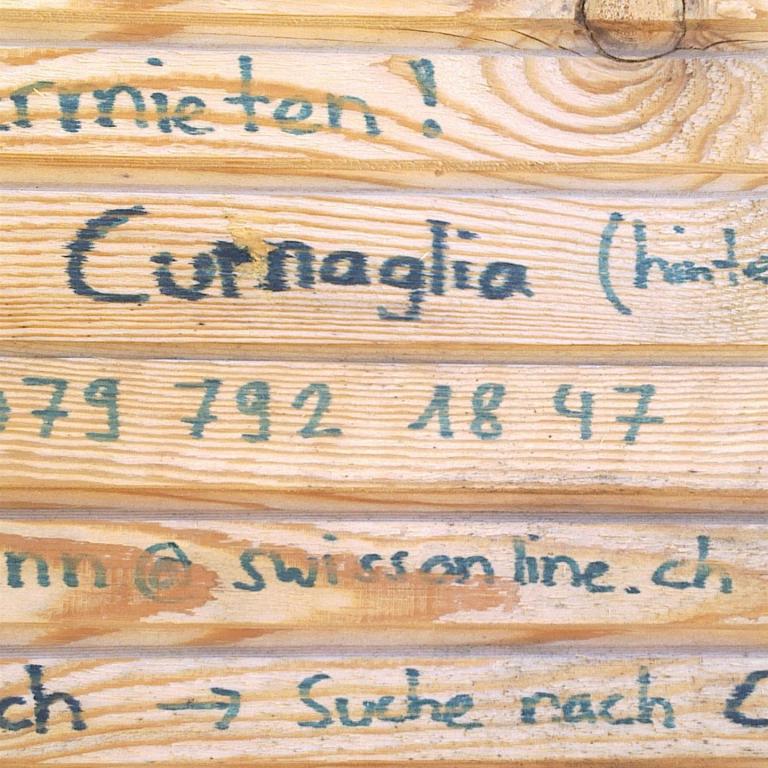 ermieten!
Curnaglia (hinte
079 792 18 47
nn@swissonline.ch
ch → Suche nach C